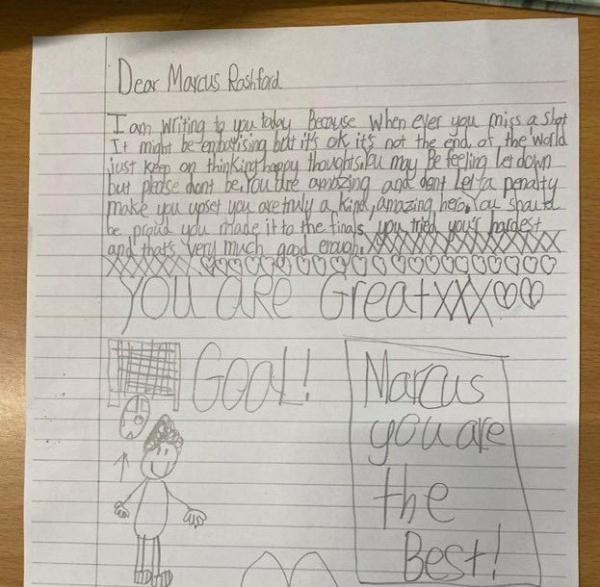 Dear Marcus Rashford
I am writing to you today Because when ever you miss a shot
It might be embarising but it's ok it's not the end of the world
just keep on thinking happy thoughts. You may Be feeling let down
but please dont be. You are amazing and dont let a penalty
make you upset you are truly a kind, amazing hero. You should
be proud you made it to the finals, you tried your hardest
and that's very much good enough. XXXXXXXXXXXXXXX
XXXXXXXX
YOU aRe GreatXXX
GOAL!
Marcus
you are
the
Best!